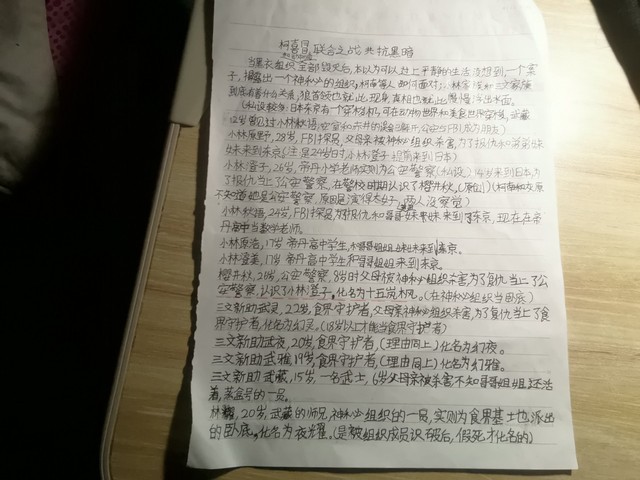 柯喜 联合之战 共抗黑暗
当黑衣组织全部毁灭后,本以为可以过上平静的生活 没想到,一个案
子,揭露出一个神秘的组织,柯南等人 如何面对,小林家 和三文家
到底有着什么关系,狼首领也就此现身,真相也就此慢慢浮出水面。
(私设较多:日本东京有一个空, 可在动物世界和美食世界穿梭,武藏
小林原野,28岁,FBI探员,父母亲被神秘组织杀害,为了报仇和弟弟妹
妹来到东京(注是24岁时,小林澄子提前来到日本)
小林澄子,26岁,帝丹小学老师实则为公安警察(私设) 岁来到日本,为
了报仇当上了公安警察,在警校时期认识了樱井秋,(原创)(柯南和灰原
不知道她是公安警察,原因是演得太好了,两人没察觉)
小林秋梧,24岁,FBI探员,为报仇和哥哥妹弟妹来到了东京,现在在帝
丹高中当数学老师。
小林原浩,17岁 帝丹高中学生,和哥哥姐姐妹来到东京。
小林澄美,17岁 帝丹高中学生和哥哥姐姐来到东京。
樱井秋,28岁,公安警察,8岁时父母被神秘组织杀害为了复仇当上了公
安警察,认识了小林澄子,化名为十五岚枫。(在神秘组织当卧底)
三文新助武灵,22岁,食界守护者,父母亲神秘组织杀害,为了复仇当上了食
界守护者,化名为幻灵。(18岁以上才能当食界守护者)
三文新助武夜,20岁,食界守护者,(理由同上)化名为幻夜。
三文新助武雅,19岁,食界守护者,(理由同上)化名为幻雅。
三文新助武藏,15岁,一名武士,6岁父母亲被杀害不知哥哥姐姐还活
着,茶盒号的一员。
林,20岁,武藏的师兄,神秘组织的一员,实则为食界基士也派出
的卧底,化名为夜耀。(是被组织成员识破后,假死才化名的)